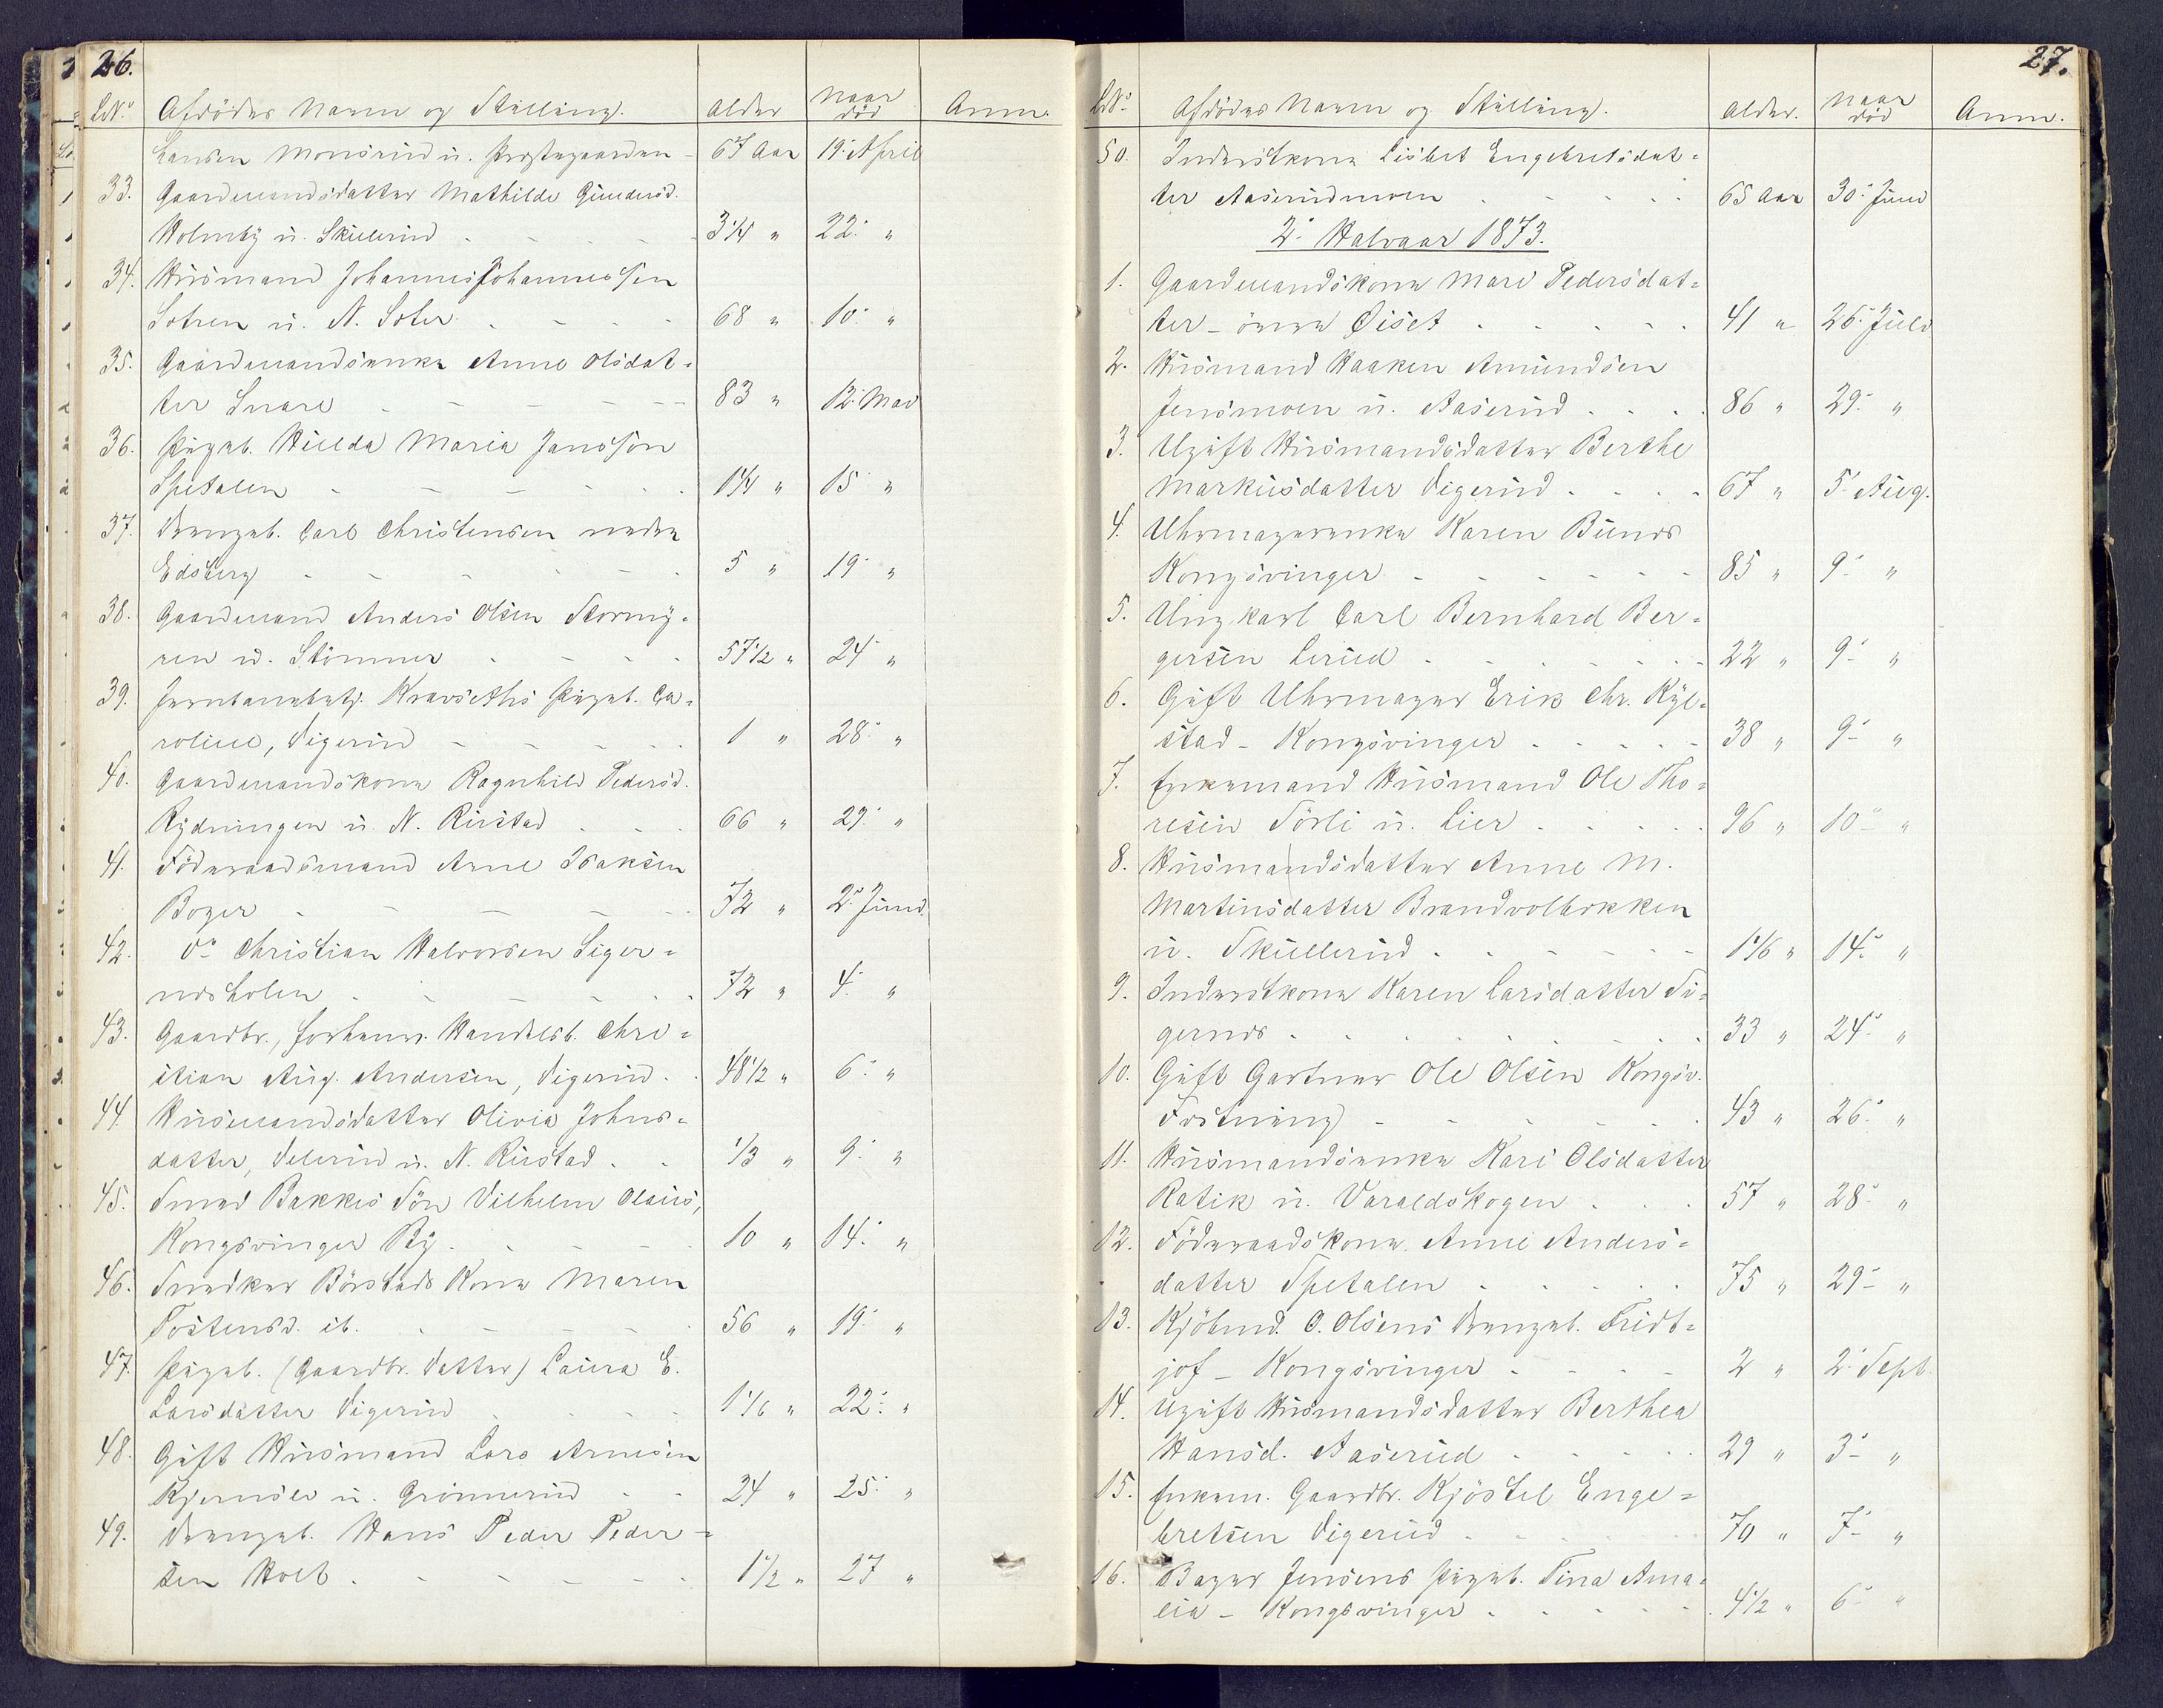 26.
LN° Afdödes Navn og Stilling. Alder Naar död Anm.
Larsen Monsrud u. Prestegaarden - 67 Aar 19. April
33. Gaardmandsdatter Mathilde Gundersd.
Holmby u. Skullerud - 3 1/4 " 22. "
34. Husmand Johannes Johannessen
Sotren u. N. Soter - 68 " 10. "
35. Gaardmandsenke Anne Olsdat=
ter Snare - 83 " 12. Mai
36. Pigeb. Hilda Maria Jansson
Spetalen - 1 1/4 " 15 "
37. Drengeb. Carl Christensen nedre
Edsberg - 5 " 19. "
38. Gaardmand Anders Olsen Stormy=
ren u. Strömmer - 57 1/2 " 24. "
39. Kravseths Pigeb. Ca=
roline, Digerud - 1 " 28. "
40. Gaardmandskone Ragnhild Pedersd.
Rydningen u. N. Rustad - 66 " 29. "
41. Föderaadsmand Arne Isaksen
Boger - 72 " 2. Juni
42. D° Christian Halvorsen Siger=
nesholen - 72 " 4. "
43. Gaardbr., forhenv. Handelsb. Chri=
stian Aug. Andersen, Digerud - 48 1/2 " 6. "
44. Husmandsdatter Olivia Johns=
datter, Delerud u. N. Rustad - 1/3 " 9. "
45. Smed Bakkes Sön Vilhelm Olaus,
Kongsvinger By - 10 " 14. "
46. Snedker Börstads Kone Maren
Tostensd. ib. - 56 " 19. "
47. Pigeb. (Gaardbr. Datter) Laura E.
Larsdatter Digerud - 1 1/6 " 22. "
48. Gift Husmand Lars Arnesen
Kjernsli u. Grönnerud - 24 " 25. "
49. Drengeb. Hans Peder Peder=
sen Holt - 1 1/2 " 27 "
27.
LN° Afdödes Navn og Stilling. Alder. Naar död Anm.
50. Inderstkone Lisbet Engebretsdat=
ter Aaserudmoen - 65 Aar 30. Juni
2. Halvaar 1873.
1. Gaardmandskone Mari Pedersdat=
ter - övre Öiset - 41 " 26. Juli
2. Husmand Haaken Amundsen
Jensmoen u. Aaserud - 86 " 29. "
3. Ugift Husmandsdatter Berthe
Markusdatter Digerud - 67 " 5. Aug.
4. Uhrmagerenke Karen Bunes
Kongsvinger - 85 " 9. "
5. Ungkarl Carl Bernhard Ber=
gersen Lerud - 22 " 9. "
6. Gift Uhrmager Erik Chr. Kyl=
stad - Kongsvinger - 38 " 9. "
7. Enkemand Husmand Ole Tho=
resen Sörli u. Lier - 96 " 10. "
8. Husmandsdatter Anne M.
Martinsdatter Brandvolbakken
u. Skullerud - 1 1/6 " 14. "
9. Inderstkone Karen Larsdatter Si=
gernes - 33 " 24. "
10. Gift Gartner Ole Olsen Kongsv.
Fæstning - 43 " 26. "
11. Husmandsenke Kari Olsdatter
Ratik u. Varaldskogen - 57 " 28. "
12. Föderaadskone Anne Anders=
datter Spetalen - 75 " 29. "
13. Kjöbmd. O. Olsens Drengeb. Fridt=
jof - Kongsvinger - 2 " 2. Sept.
14. Ugift Husmandsdatter Berthea
Hansd. Aaserud - 29 " 3. "
15. Enkem. Gaardbr. Kjöstel Enge=
bretsen Digerud - 70 " 7. "
16. Bager Jensens Pigeb. Tina Ama=
lia - Kongsvinger - 4 1/2 " 6. "